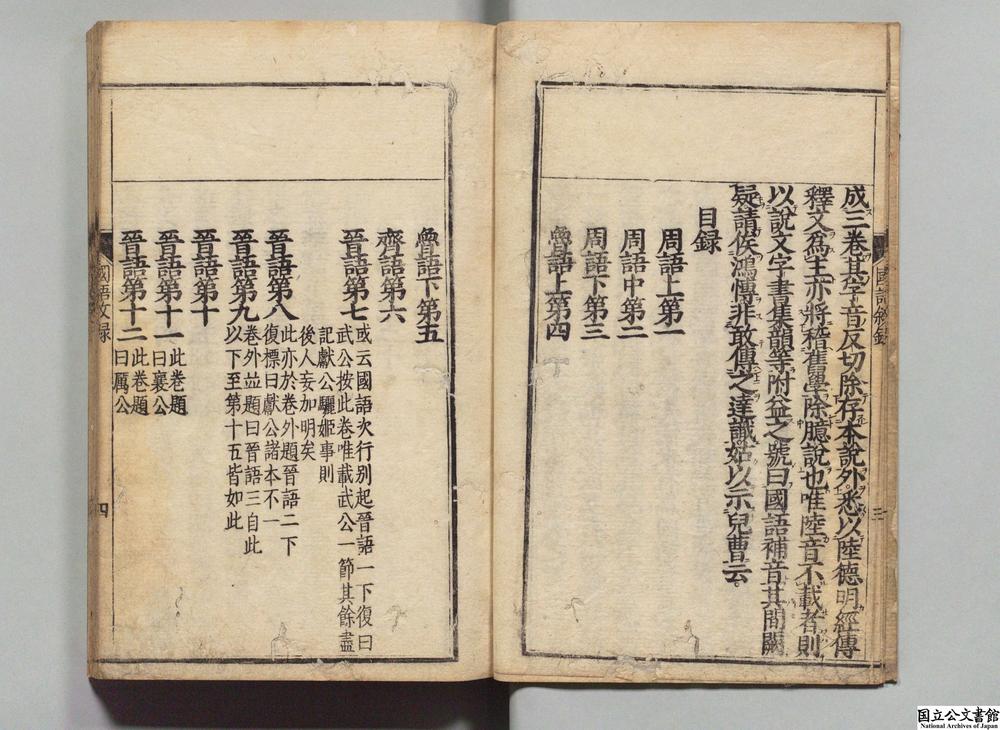 成三卷其字音反切除存本說外悉以陸德明經傳
釋文為主亦將稽舊學除臆說也唯陸音不載者則
以說文字書集韻等附益之號曰國語補音其間闕
疑請俟鴻博非敢傳之達識姑以示兒曹云
目録
周語上第一
周語中第二
周語下第三
魯語上第四
三
魯語下第五
齊語第六
晉語第七
或云國語次行别起晉語一下復曰
武公按此卷唯載武公一節其餘盡
記獻公驪姬事則
後人妄加明矣
晉語第八
此亦於卷外題晉語二下
復標曰獻公諸本不一
晉語第九
卷外並題曰晉語三自此
以下至第十五皆如此
晉語第十
晉語第十一
此卷題
曰襄公
晉語第十二
此卷題
曰厲公
四
国立公文書館
National Archives of Japan